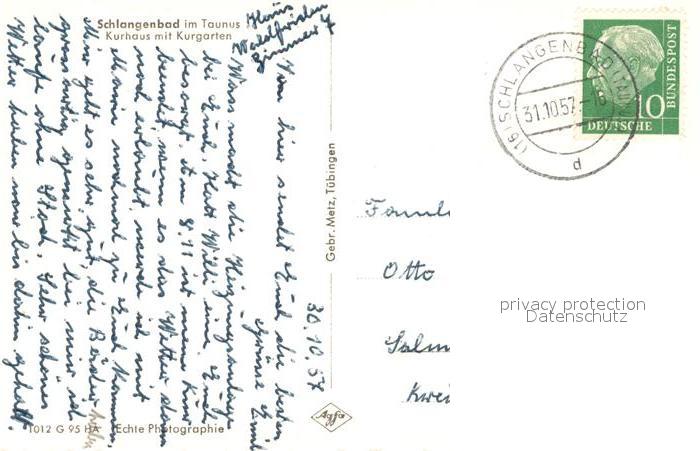 Schlangenbad im Taunus
Kurhaus mit Kurgarten
Haus
Waldfrieden
Zimmer 4
30.10.57
Von hier sendet Euch die besten
Grüsse Emil
Was macht die Heizungsanlage
bei Euch. Hat Willi eine
besorgt. Am 8.11 ist mein Kur
beendet wenn es das Wetter dann
noch erlaubt, werde ich mit
zu Euch kommen
Mir geht es sehr gut, die Bäder haben
grossartig gewirkt bei mir ich
laufe ohne Stock. Sehr schönes
Wetter haben wir bis dahin gehabt.
1012 G 95 HA Echte Photographie
Gebr. Metz, Tübingen
Agfa
(16) SCHLANGENBAD (TAUNUS)
31.10.57.-18
d
10
DEUTSCHE
BUNDESPOST
Famil
Otto
Salm
Krei
privacy protection
Datenschutz